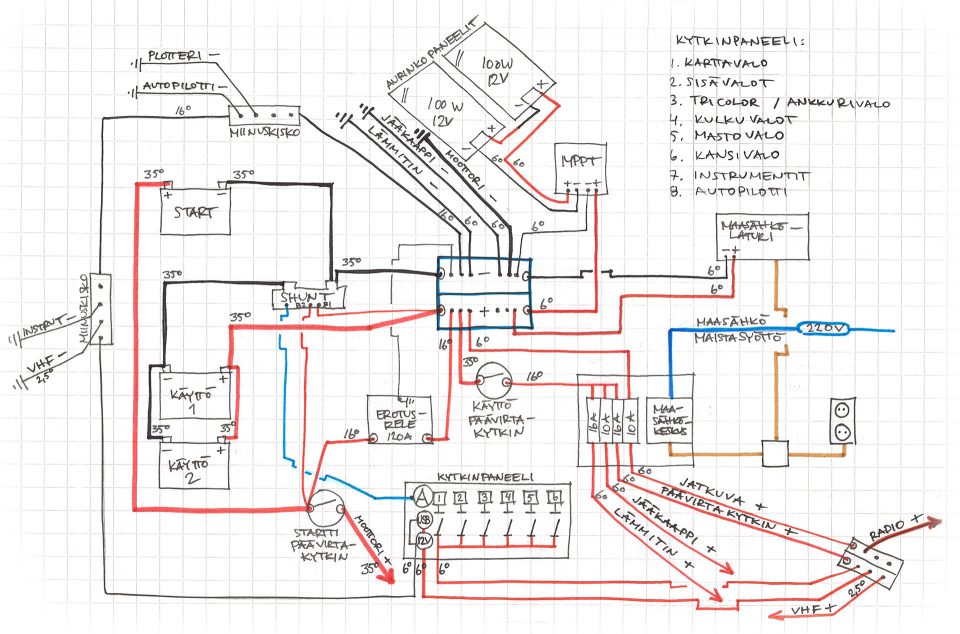 PLOTTERI −
AUTOPILOTTI −
16°
MIINUSKISKO
AURINKOPANEELIT
100W
12V
100 W
12V
+
−
+
−
JÄÄKAAPPI −
LÄMMITIN −
MOOTTORI −
6°
6°
MPPT
+ − − +
KYTKINPANEELI:
1. KARTTAVALO
2. SISÄVALOT
3. TRICOLOR / ANKKURIVALO
4. KULKUVALOT
5. MASTOVALO
6. KANSIVALO
7. INSTRUMENTIT
8. AUTOPILOTTI
35°
35°
+ −
START
16°
6°
6°
6°
MAASÄHKÖ-
LATURI
− +
6°
6°
35°
35°
−
+
6°
SHUNT
B2 B1
MIINUSKISKO
INSTRUT −
VHF −
2,5°
35°
16°
6°
35°
16°
MAASÄHKÖ
MAISTASYÖTTÖ
220V
+ −
KÄYTTÖ
1
35°
35°
+ −
KÄYTTÖ
2
EROTUS-
RELE
120A
16°
KÄYTTÖ
PÄÄVIRTA-
KYTKIN
16A
10A
16A
10A
MAA-
SÄHKÖ-
KESKUS
KYTKINPANEELI
A
1 2 3 4 5 6
USB
12V
STARTTI
PÄÄVIRTA-
KYTKIN
MOOTTORI +
35°
6° 6° 6°
6°
6°
6°
6°
JATKUVA +
PÄÄVIRTAKYTKIN +
JÄÄKAAPPI +
LÄMMITIN +
RADIO +
2,5°
VHF +